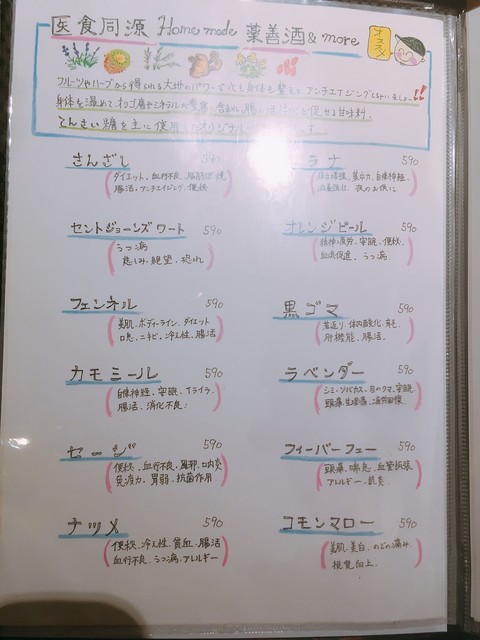 医食同源 Home made 薬善酒 & more
オススメ
フルーツやハーブから得られる大地のパワーで
アンチエイジングしちゃいましょー!!
身体を温めて、オリゴ糖やミネラルが豊富に含まれ、腸の活性化を促せる甘味料。
てんさい糖を主に使用した
さんざし 590
(ダイエット、血行不良、脂肪燃焼
腸活、アンチエイジング、便秘)
ラナ 590
集中力、自律神経
滋養強壮、夜のお供に)
セントジョーンズワート 590
(うつ病
悲しみ、絶望、恐れ)
オレンジピール 590
(精神疲労、安眠、便秘、
血流促進、うつ病)
フェンネル 590
(美肌、ボディーライン、ダイエット
口臭、ニキビ、冷え性、腸活)
黒ゴマ 590
(若返り、体内酸化、育毛
肝機能、腸活)
カモミール 590
(自律神経、安眠、イライラ
腸活、消化不良)
ラベンダー 590
(シミ、ソバカス、目のクマ、安眠
頭痛、生理痛、疲労回復)
セージ 590
(便秘、血行不良、風邪、口内炎
免疫力、胃弱、抗菌作用)
フィーバーフュー 590
(頭痛、喘息、血管拡張
アレルギー、肌炎)
ナツメ 590
(便秘、冷え性、貧血、腸活
血行不良、うつ病、アレルギー)
コモンマロー 590
(美肌、美白、のどの痛み
視覚向上)